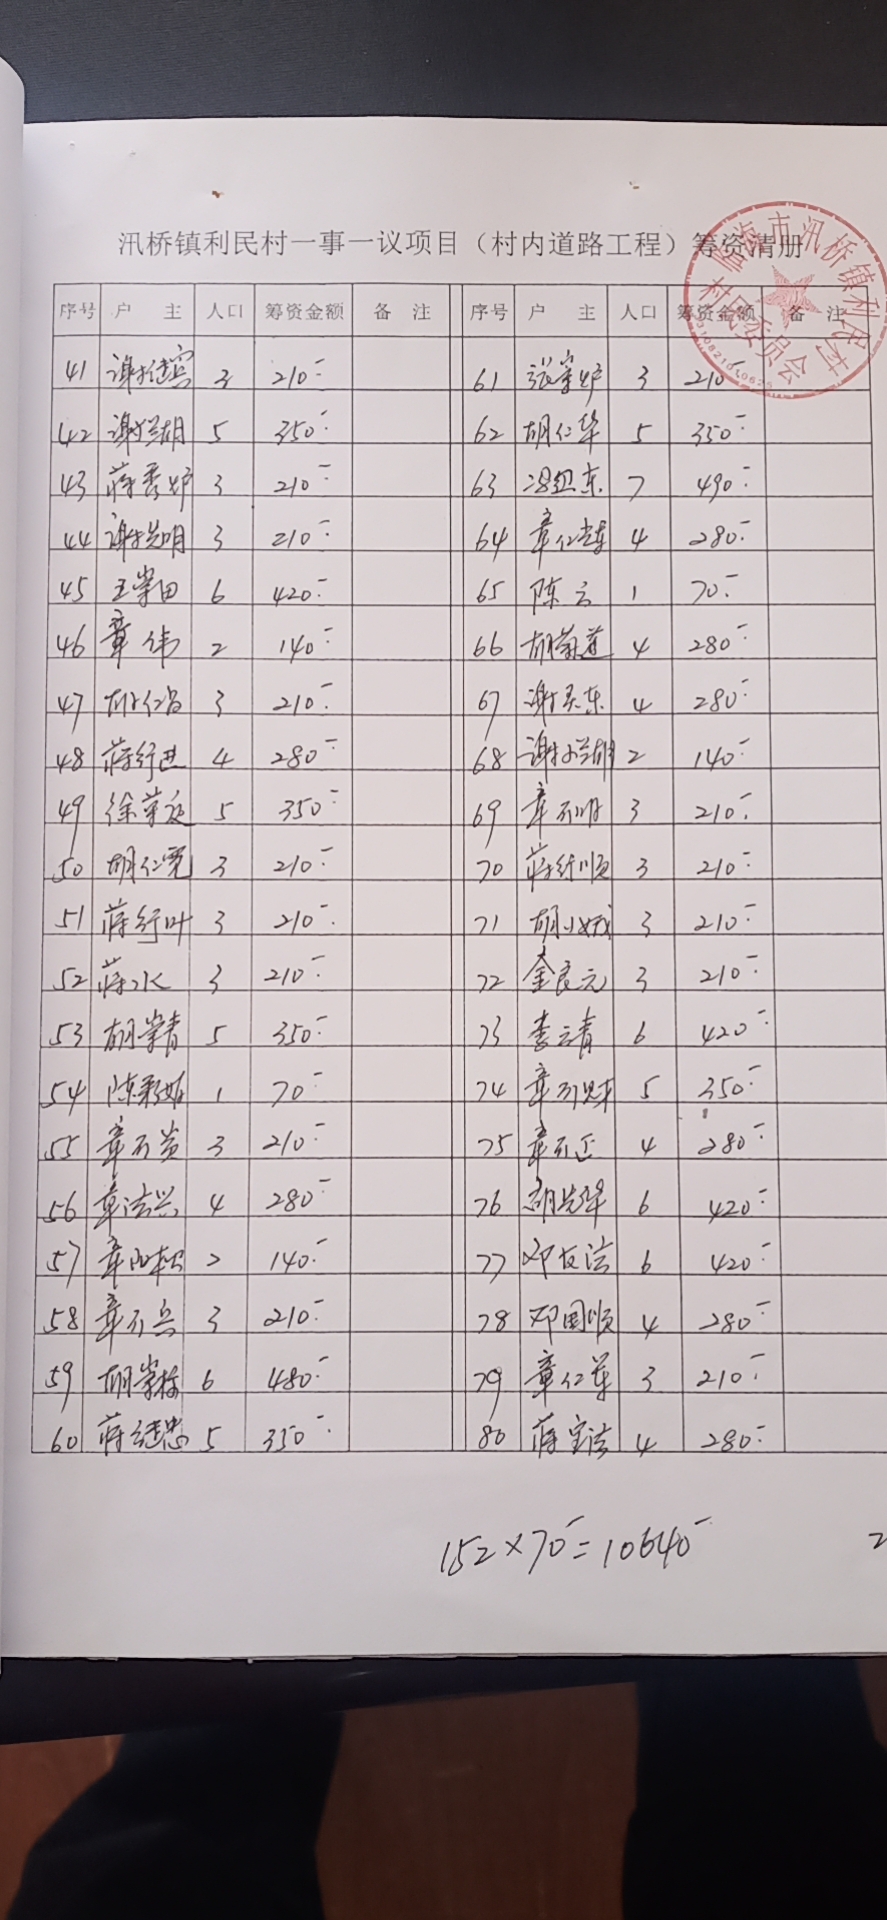 汛桥镇利民村一事一议项目（村内道路工程）筹资清册
临海市汛桥镇利民村
村民委员会
序号 户 主 人口 筹资金额 备 注 序号 户 主 人口 筹资金额 备 注
41 谢继宾 3 210 61 张崇炉 3 210
42 谢兰胡 5 350 62 胡仁华 5 350
43 蒋秀炉 3 210 63 冯纽东 7 490
44 谢兰明 3 210 64 章仁 4 280
45 王崇田 6 420 65 陈云 1 70
46 章伟 2 140 66 胡菊莲 4 280
47 胡仁 3 210 67 谢 东 4 280
48 蒋行进 4 280 68 谢 2 140
49 徐 5 350 69 章 明 3 210
50 胡仁宽 3 210 70 蒋行顺 3 210
51 蒋行叶 3 210 71 胡小娥 3 210
52 蒋水 3 210 72 金良元 3 210
53 胡崇青 5 350 73 李云青 6 420
54 陈 1 70 74 章 财 5 350
55 章 3 210 75 章 正 4 280
56 章法兴 4 280 76 胡 6 420
57 章 松 2 140 77 邓友法 6 420
58 章 兵 3 210 78 邓国顺 4 280
59 胡崇 6 480 79 章仁军 3 210
60 蒋继忠 5 350 80 蒋宝法 4 280
152×70=10640
2